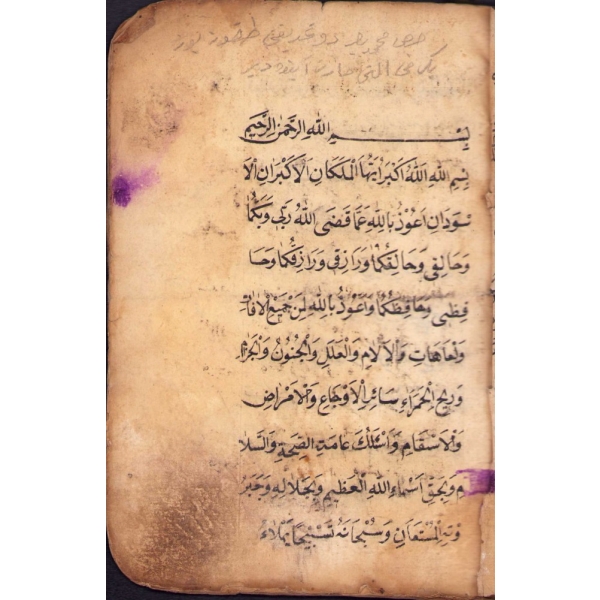 بِسْمِ اللهِ الرَّحْمٰنِ الرَّحِيمِ
بِسْمِ اللهِ اَللهُ اَكْبَرُ اَيَّتُهَا الْمَلَكَانِ الْاَكْبَرَانِ الْاَ
سْوَدَانِ اَعُوذُ بِاللهِ عَمَّا قَضَى اللهُ رَبِّى وَرَبُّكُمَا
وَخَالِقِى وَخَالِقُكُمَا وَرَازِقِى وَرَازِقُكُمَا وَحَا
فِظِى وَحَافِظُكُمَا وَاَعُوذُ بِاللهِ مِنْ جَمِيعِ الْاٰفَاتِ
وَالْعَاهَاتِ وَالْاٰلَامِ وَالْعِلَلِ وَالْجُنُونِ وَالْجُذَامِ
وَرِيحِ الْحَمْرَاءِ سَائِرِ الْاَوْجَاعِ وَالْاَمْرَاضِ
وَالْاَسْقَامِ وَاَسْئَلُكَ عَامَّةَ الصِّحَّةِ وَالسَّلَا
مِ وَبِحَقِّ اَسْمَاءِ اللهِ الْعَظِيمِ وَبِجَلَالِهِ وَجَبَرُ
وتِهِ الْمُسْتَعَانِ وَسُبْحَانَهُ تَسْبِيحًا يَمْلَاءُ